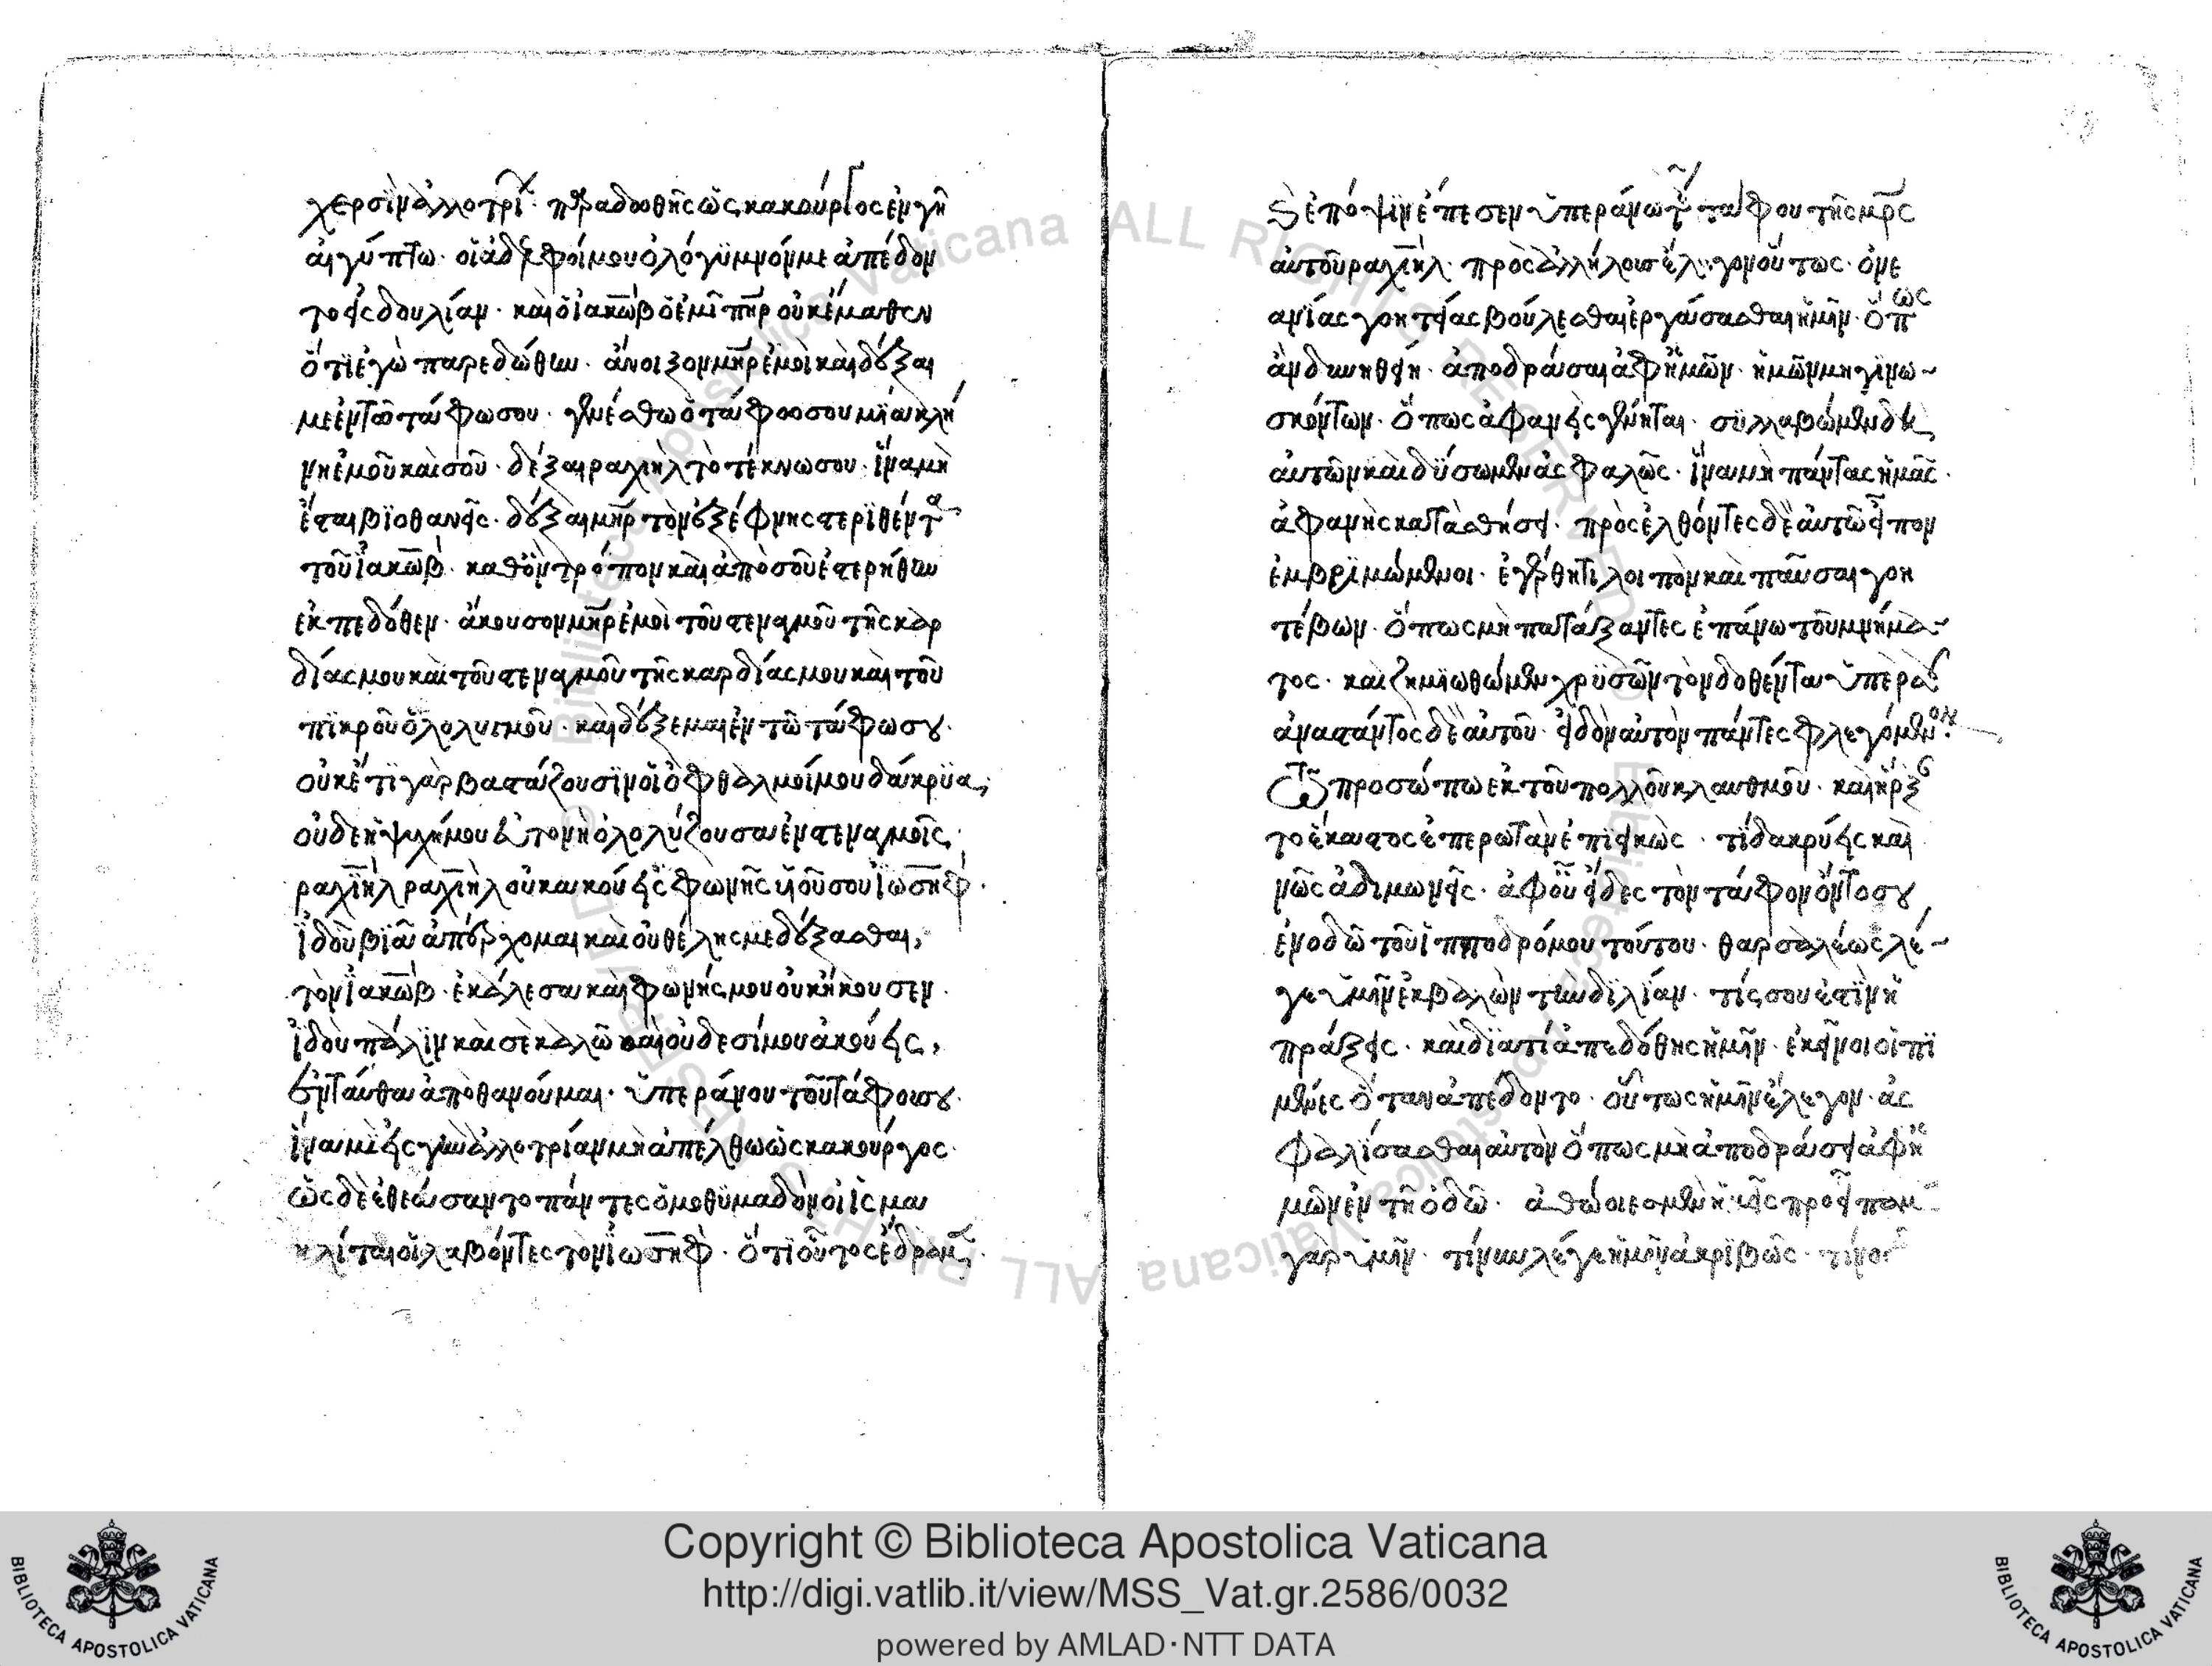 χερσὶν ἀλλοτρί· παραδοθῆς ὡς κακούργος ἐν γῆ
αἰγύπτω· οἱ ἀδελφοί μου ὁλόγυμνόν με ἀπέδον
το εἰς δουλίαν· καὶ ὁ ϊακὼβ ὁ ἐμὸς πηρ οὐκ ἔμαθεν
ὅτι ἐγὼ παρεδώθην· ἄνοιξον μηρ ἐμοὶ καὶ δέξαι
με ἐν τῶ τάφω σου· γενέσθω ὁ τάφος σου μία κλή
νη ἐμοῦ καὶ σοῦ· δέξαι ραχιὴλ τὸ τέκνω σου· ἵνα μὴ
ἔσται βιοθανεῖς· δέξαι μηρ τὸν ἐξέφνης στεριθέντα
τοῦ ϊακὼβ· καθ ὃν τρόπον καὶ ἀπὸ σοῦ ἐστερήθην
ἐκ πεδόθεν· ἄκουσον μηρ ἐμοὶ τοῦ στεναγμοῦ τῆς καρ
δίας μου καὶ τοῦ στεναγμοῦ τῆς καρδίας μου καὶ τοῦ
πικροῦ ὀλολυγμοῦ· καὶ δέξε μαι ἐν τῶ τάφω σου·
οὐκέτι γὰρ βαστάζουσιν οἱ ὀφθαλμοί μου δάκρυα,
οὐδε ἡ ψυχή μου ἔτονη ὀλολύζουσα ἐν στεναγμοῖς,
ραχιὴλ ραχιὴλ οὐκ ακούεις φωνῆς υἱοῦ σου ϊωσὴφ·
ἰδοὺ βία ἀπέρχομαι καὶ οὐ θέλης με δέξασθαι,
τὸν ϊακὼβ· ἐκάλεσα καὶ φωνής μου οὐκ ἤκουσεν·
ἰδοὺ πάλιν καὶ σὲ καλῶ καὶ οὐδε σί μου ἀκούεις,
ἐνταύθα ἀποθανούμαι· ὑπεράνου τοῦ τάφου σου·
ἵνα μὶ εἰς γῆν ἀλλοτρίαν μὴ ἀπέλθω ὡς κακούργος·
ὡς δὲ ἐθεάσαντο πάντες ὁμοθυμαδὸν οἱ ἰσμα
ηλίται οἱ λαβόντες τὸν ϊωσὴφ· ὅτι οὗτος ἔδραμε,
καὶ ἐπόψιν ἔπεσεν ὑπεράνω τοῦ τάφου τῆς μρς
αὐτοῦ ραχιὴλ· πρὸς ἀλλήλους ἔλεγον οὕτως· ὁ νε
ανίας γοητείας βούλεσθαι ἐργάσασθαι ἡμῖν· ὅπως
ἂν δυνηθῆ· ἀποδράσαι ἀφ ἡμῶν· ἡμῶν μη γινω
σκόντων· ὅπως ἀφανεὶς γένηται· συλλαβώμεν δὲ
αὐτῶν καὶ δήσωμεν ἀσφαλῶς· ἵνα μὴ πάντας ἡμᾶς·
ἀφανὴς καταστήσει· πρὸς ἐλθόντες δὲ αὐτῶ εἶπον
ἐμβριμώμενοι· ἐγέρθητι λοιπὸν καὶ παῦσαι γοη
τέβων· ὅπως μὴ πατάξαντες ἐπάνω τοῦ μνήμα
τος· καὶ ζημιωθώμεν χρυσῶν τὸν δοθένται ὑπὲρ σοῦ
ἀναστάντος δὲ αὐτοῦ· εἶδον αὐτὸν πάντες φλεγόμενον·
τῶ προσώπω ἐκ τοῦ πολλοῦ κλαυθμοῦ· καὶ ἤρξα
το ἕκαστος ἐπερωτὰν ἐπιεικὼς· τί δακρύεις καὶ
νῶς ἀδιμωνεῖς· ἀφ οὗ εἶδες τὸν τάφον ὄντος
ἐν οδῶ τοῦ ἱπποδρόμου τούτου· θαρσαλέως λέ
γε ὑμῖν ἐκβαλὼν τὴν διλίαν· τίς σου ἐστὶν ἡ
πράξεις· καὶ διατί ἀπεδόθης ἡμῖν· ἐκεῖνοι οἱ πι
μένες ὅταν ἀπέδοντο· οὕτως ἡμῖν ἔλεγον· ἀς
φαλίσασθαι αὐτὸν ὅπως μὴ ἀποδράσει ἀφ ἡ
μῶν ἐν τῆ ὁδῶ· ἀθώοι ἐσμὲν ἡμεῖς προείπομεν
γὰρ ὑμῖν· τί νυν λέγε ἡμῖν ἀκριβῶς·
Copyright © Biblioteca Apostolica Vaticana
http://digi.vatlib.it/view/MSS_Vat.gr.2586/0032
powered by AMLAD·NTT DATA